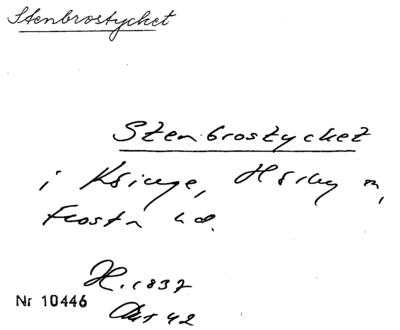 Stenbrostycket
Stenbrostycket
i Ksinge, Hsby m,
Frosta hd.
H. 1837
Nr 10446
Akt 42